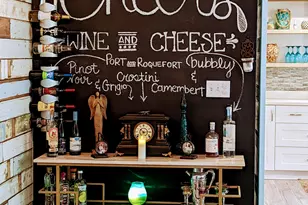 Cheers
WINE AND CHEESE
PORT AND ROQUEFORT
Pinot Noir & Grigio
Crostini & Camembert
Bubbly